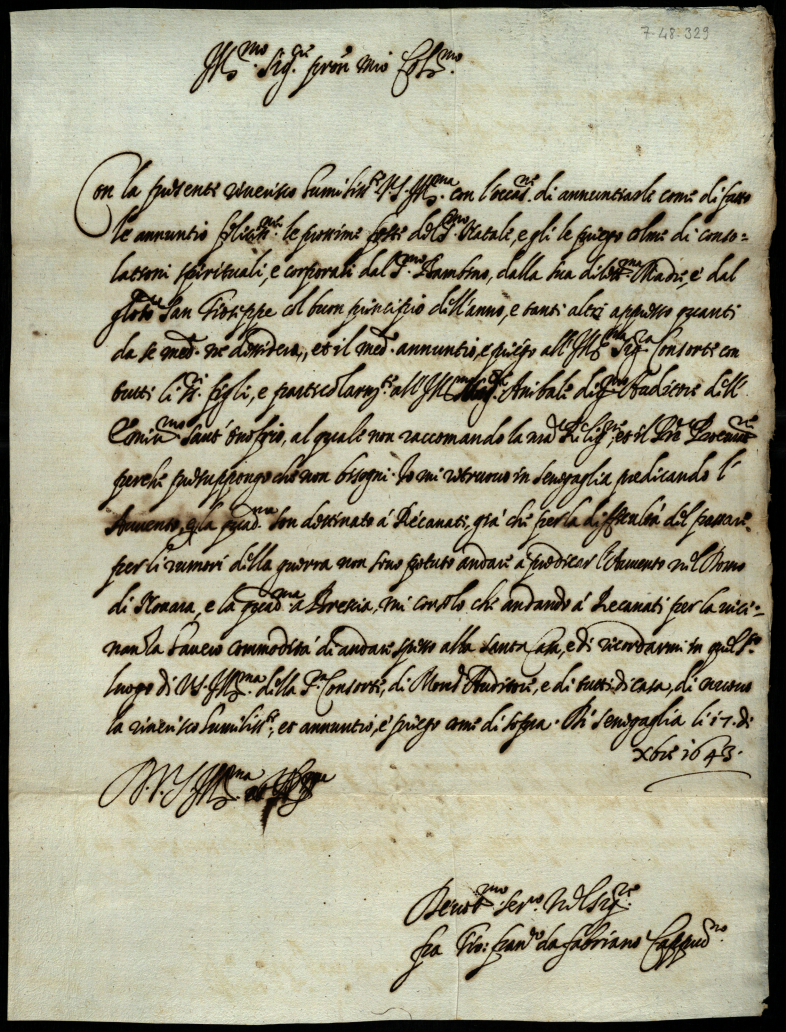 7-48.329
Ill.mo Sig.re pron mio Col.mo
Con la presente riverisco humiliss.te V.S. Ill.ma con l'occas.ne di annuntiarle come di fatto
le annuntio feliciss.me le prossime feste del S.mo Natale, e gli le priego colme di conso=
lationi spirituali, e corporali dal S.mo Bambino, dalla sua dilett.ma Madre, e dal
glorio San Gioseppe col buon principio dell'anno, e tanti altri appresso quanti
da se med.º ne desidera, et il med.º annuntio, e priego all' Ill.ma Sig.ra Consorte con
tutti li S.ri figli, e particolarm.te all' Ill.mo Anibale dig.mo Auditore dell'
Emin.mo Sant'Onofrio, al quale non raccomando la nra Relig.ne, et il Pre
perche presuppongo che non bisogni. Io mi ritruovo in Senegaglia predicando l'
Avvento, e la quad.ma son destinato à Recanati, già che per la difficultà del passare
per li rumori della guerra non sono potuto andare a predicar l'Avvento nel Domo
di Novara, e la quad.ma a Brescia, mi consolo che andando à Recanati per la vici=
nanza haverò commodità di andare spesso alla Santa Casa, e di ricordarmi in quel S.to
luogo di V.S. Ill.ma della S.ra Consorte, di Mons.r Auditore, e di tutti di casa, di nuovo
la riverisco humiliss.te, et annuntio, e priego come di sopra. Di Senegaglia li 17. di
Xbre 1643.
D. V. S. Ill.ma et
Devot.mo ser.º nel Sig.re
fra Gio: fran.co da Fabriano Cappuc.no